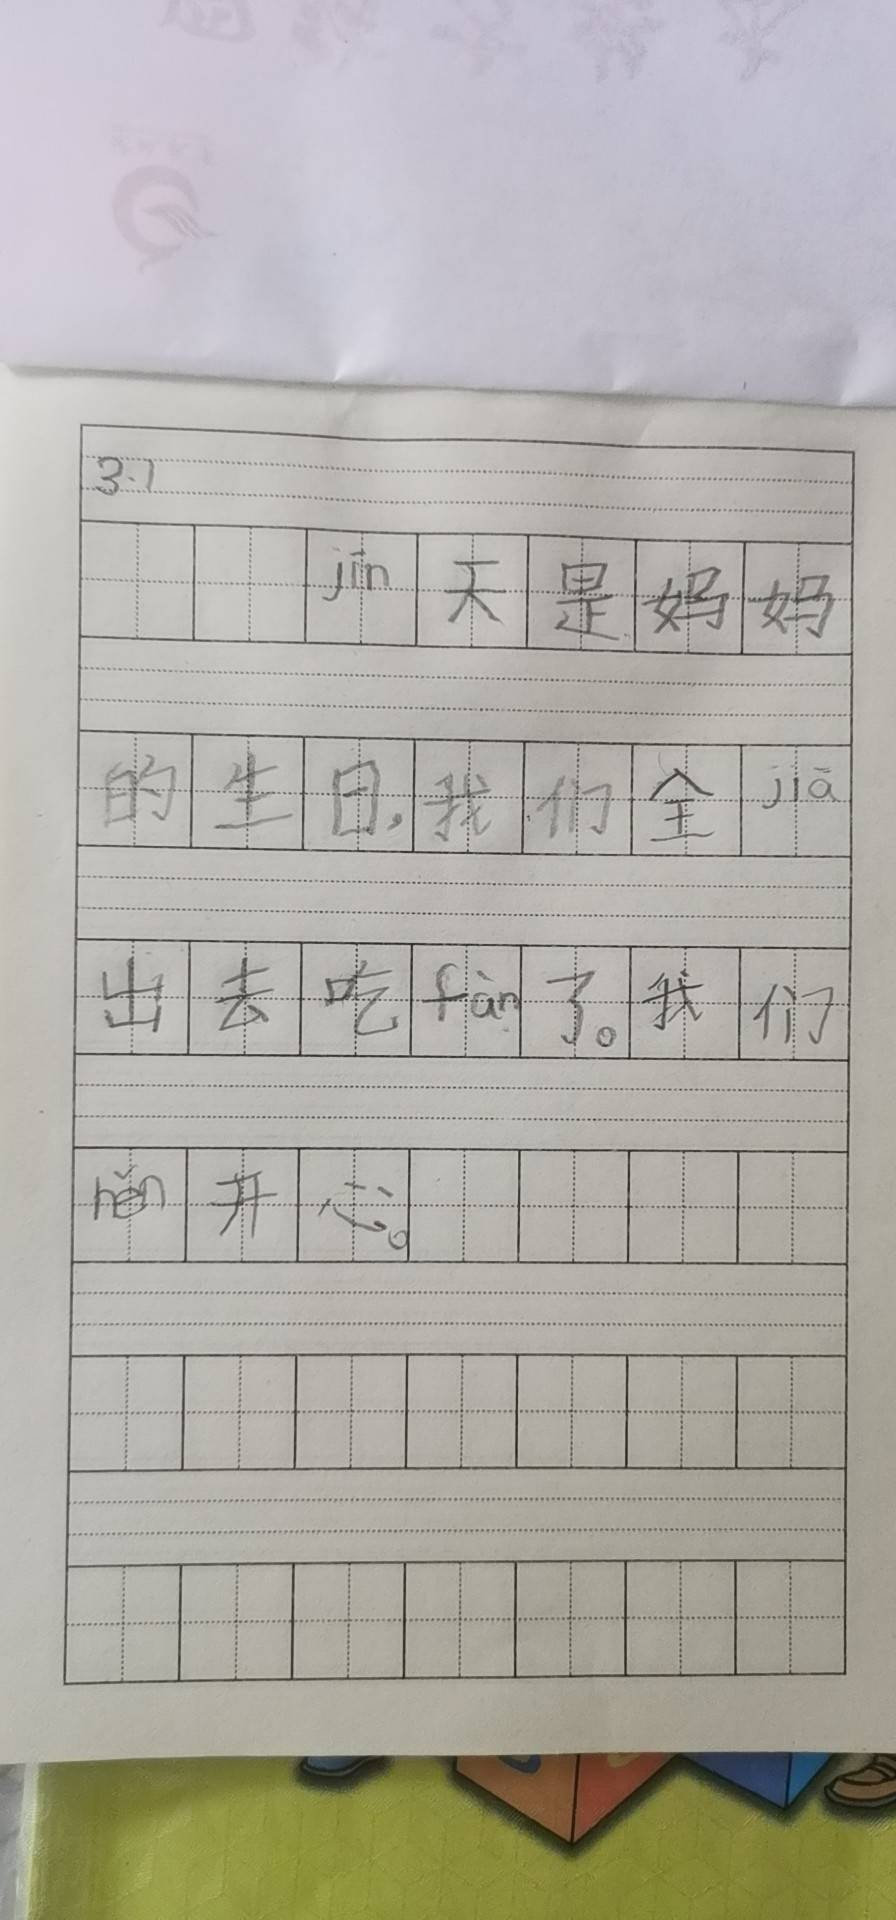 3.1
jīn天是妈妈
的生日,我们全jiā
出去吃fàn了。我们
hěn开心。